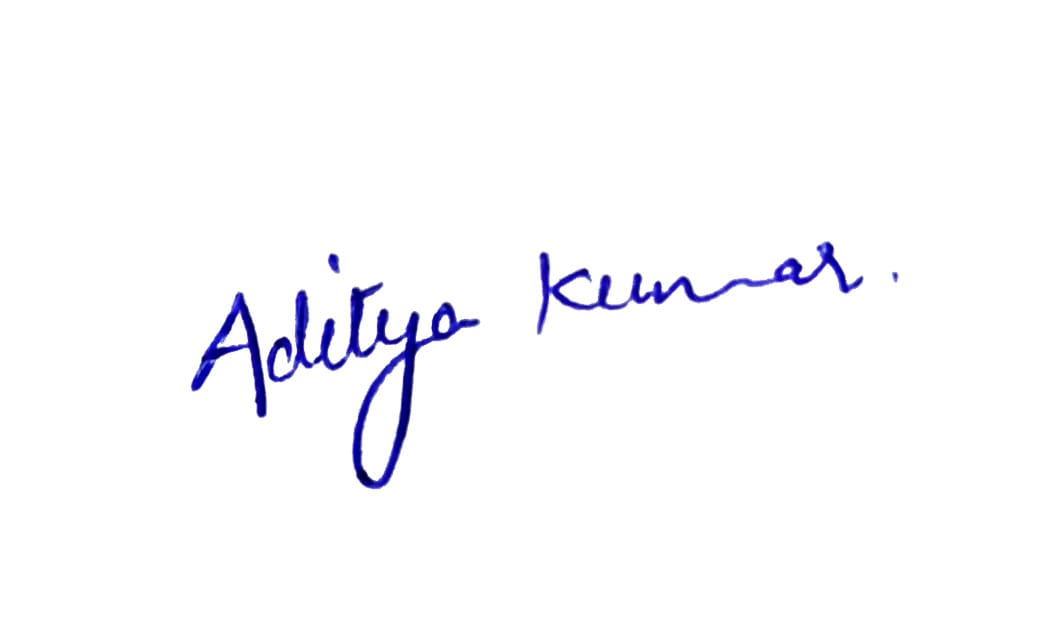 Aditya Kumar.